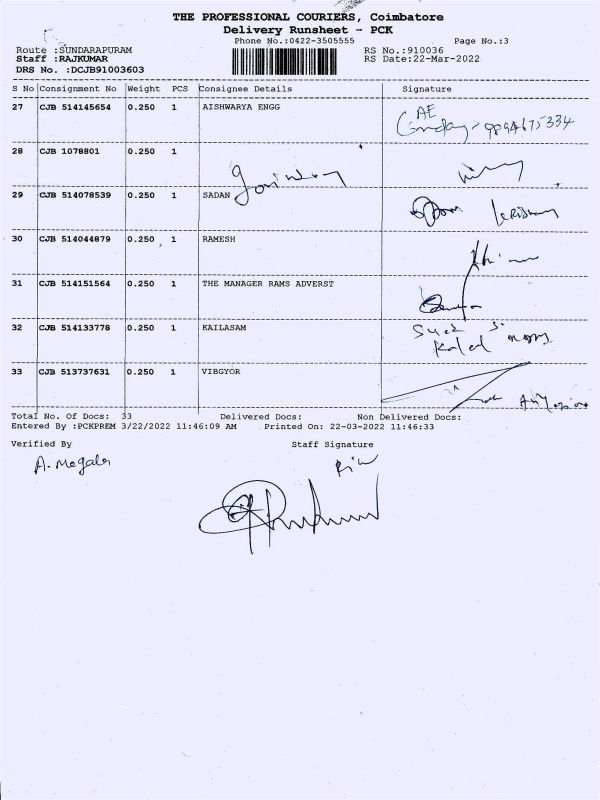 THE PROFESSIONAL COURIERS, Coimbatore
Delivery Runsheet - PCK
Phone No.:0422-3505555 Page No.:3
Route :SUNDARAPURAM RS No.:910036
Staff :RAJKUMAR RS Date:22-Mar-2022
DRS No. :DCJB91003603
S No Consignment No Weight PCS Consignee Details Signature
27 CJB 514145654 0.250 1 AISHWARYA ENGG
AE
28 CJB 1078801 0.250 1
29 CJB 514078539 0.250 1 SADAN
30 CJB 514044879 0.250 1 RAMESH
31 CJB 514151564 0.250 1 THE MANAGER RAMS ADVERST
32 CJB 514133778 0.250 1 KAILASAM
33 CJB 513737631 0.250 1 VIBGYOR
Total No. Of Docs: 33 Delivered Docs: Non Delivered Docs:
Entered By :PCKPREM 3/22/2022 11:46:09 AM Printed On: 22-03-2022 11:46:33
Verified By Staff Signature
A. Megala